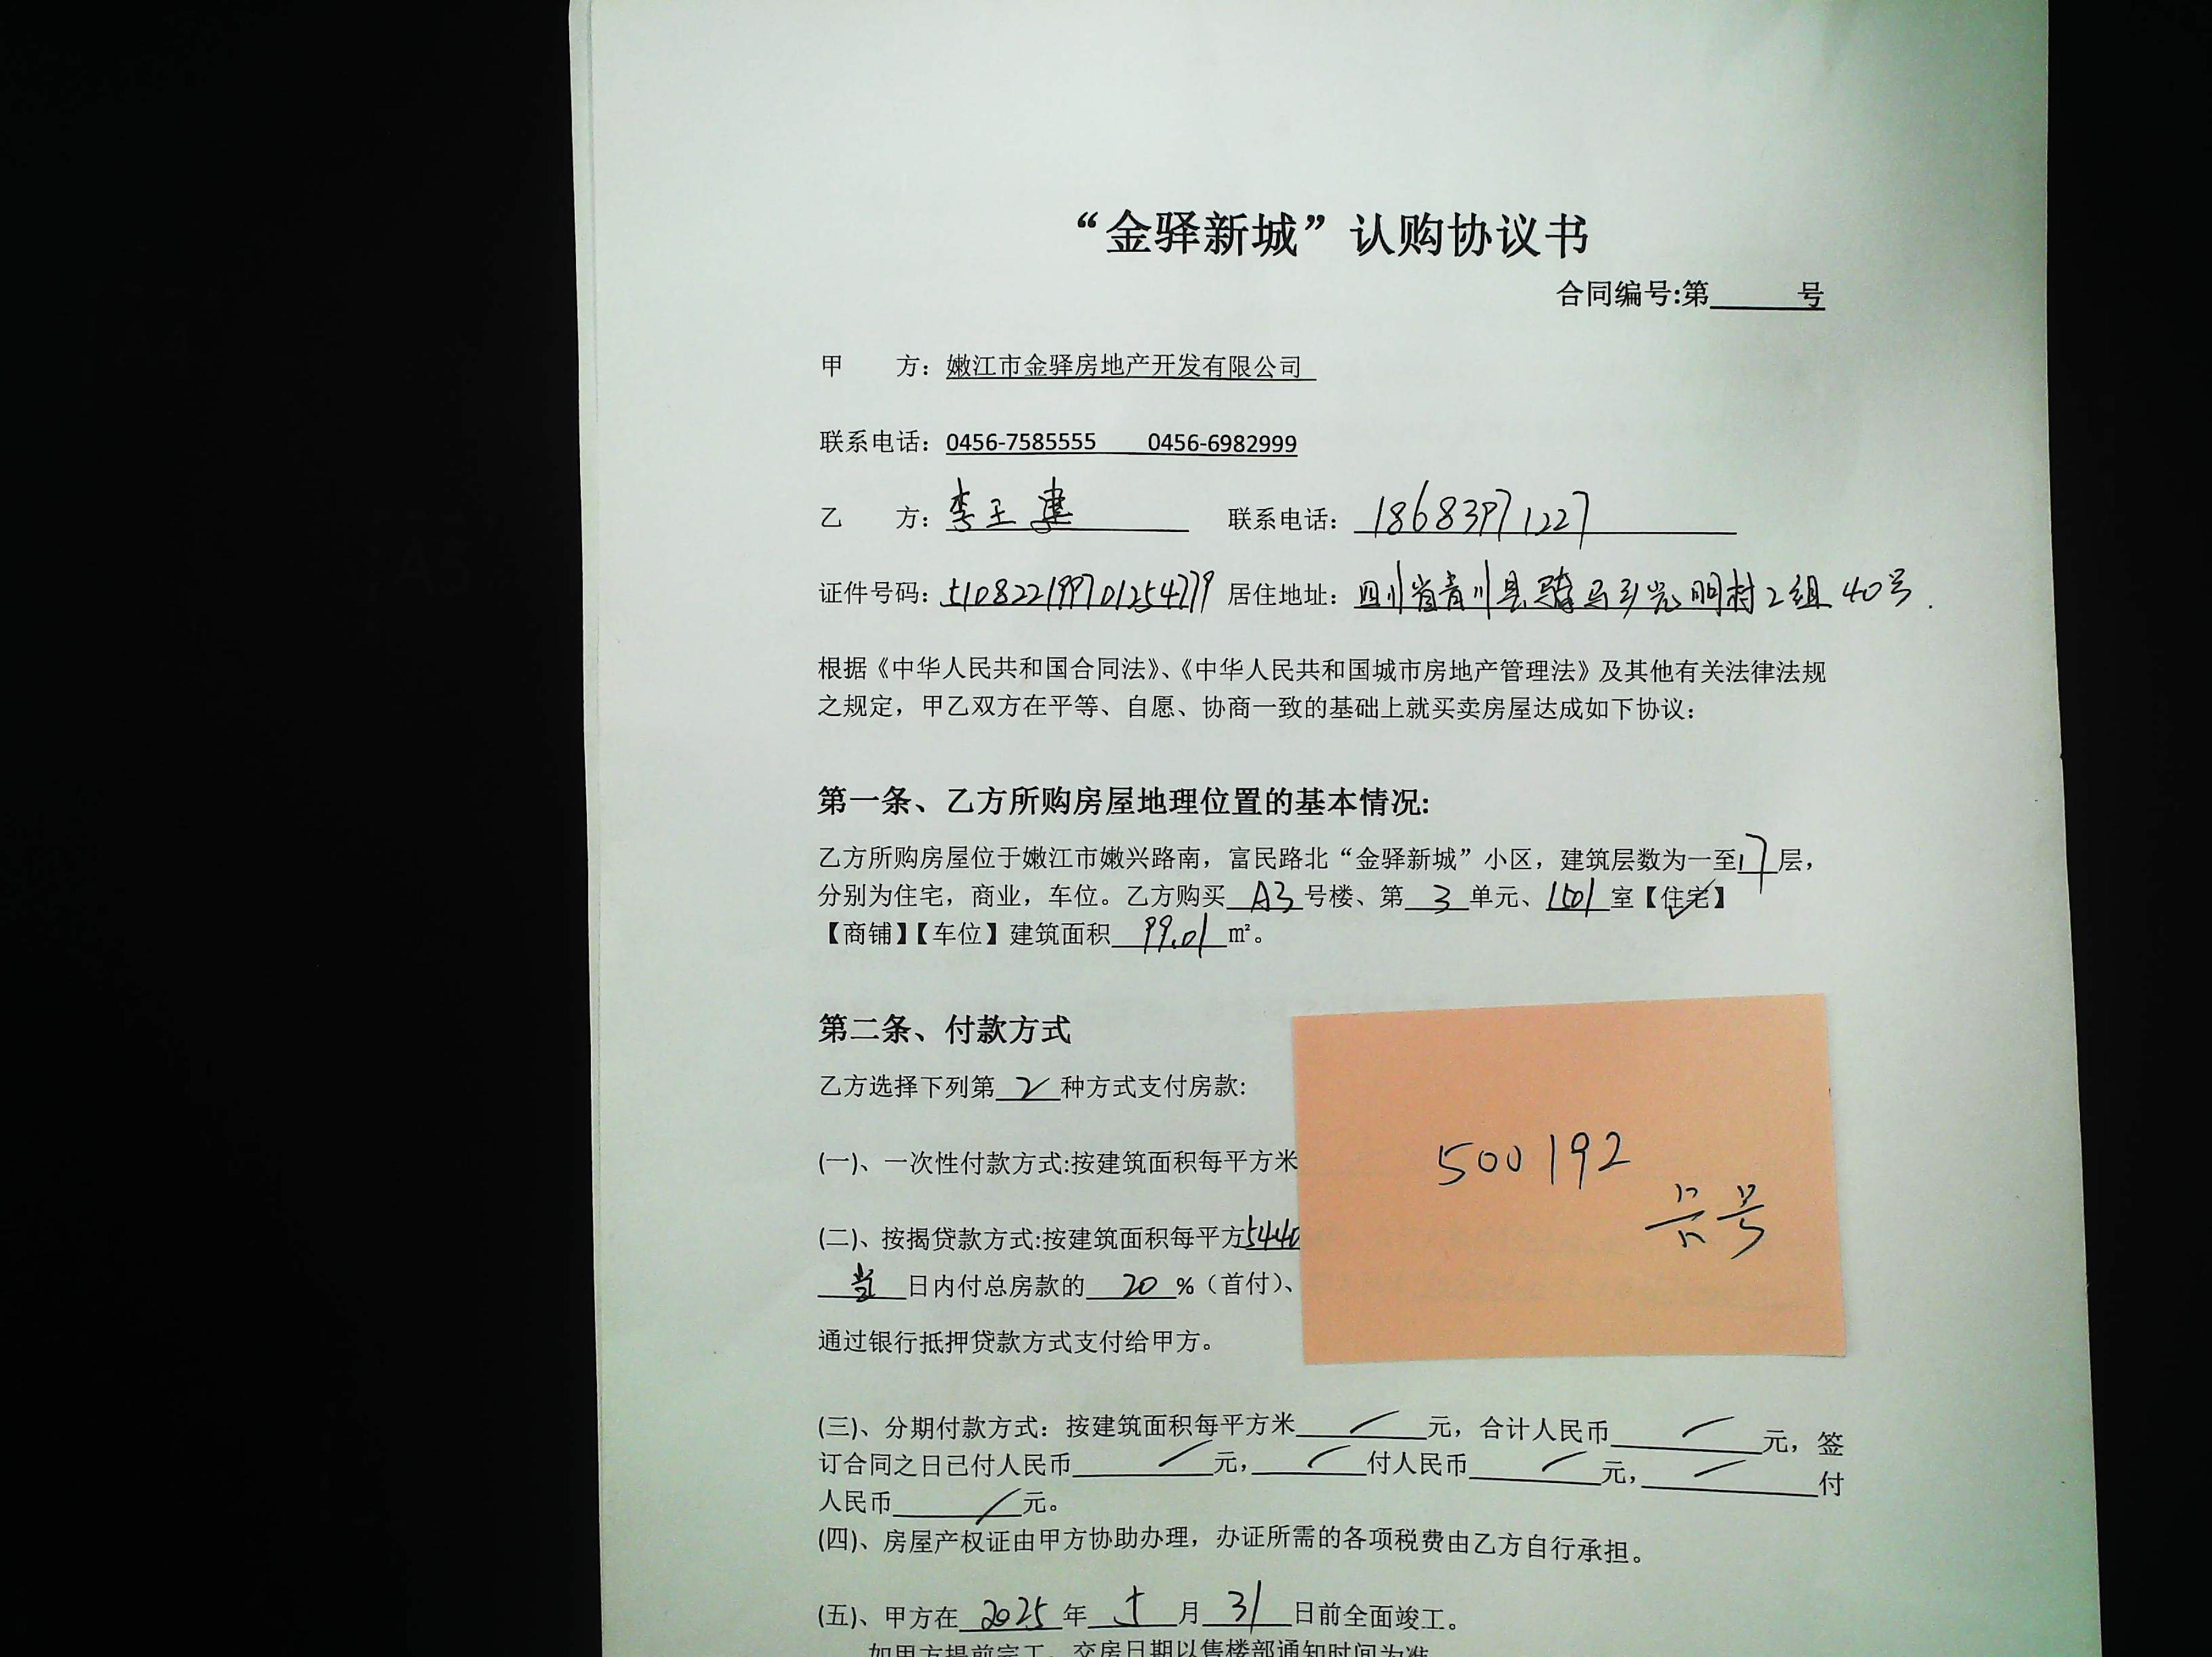 “金驿新城”认购协议书
合同编号:第______号
甲　　方：嫩江市金驿房地产开发有限公司
联系电话：0456-7585555　　0456-6982999
乙　　方：李王建　联系电话：18683971227
证件号码：510822199701254779 居住地址：四川省青川县骑马乡光明村2组40号.
根据《中华人民共和国合同法》、《中华人民共和国城市房地产管理法》及其他有关法律法规
之规定，甲乙双方在平等、自愿、协商一致的基础上就买卖房屋达成如下协议：
第一条、乙方所购房屋地理位置的基本情况:
乙方所购房屋位于嫩江市嫩兴路南，富民路北“金驿新城”小区，建筑层数为一至17层，
分别为住宅，商业，车位。乙方购买A3号楼、第3单元、1501室【住宅】
【商铺】【车位】建筑面积99.01㎡。
第二条、付款方式
乙方选择下列第2种方式支付房款:
(一)、一次性付款方式:按建筑面积每平方米
500192
(二)、按揭贷款方式:按建筑面积每平方5440
当日内付总房款的20%（首付）、
通过银行抵押贷款方式支付给甲方。
(三)、分期付款方式：按建筑面积每平方米/元，合计人民币/元，签
订合同之日已付人民币/元，/付人民币/元，/付
人民币/元。
(四)、房屋产权证由甲方协助办理，办证所需的各项税费由乙方自行承担。
(五)、甲方在2025年5月31日前全面竣工。
如甲方提前完工，交房日期以售楼部通知时间为准